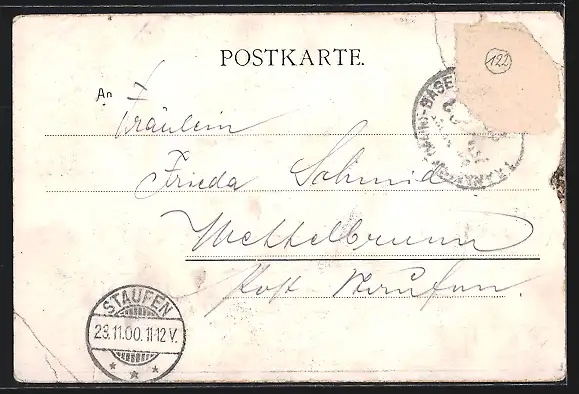 POSTKARTE.
122
An
Fräulein
BASEL
FRANKFURT
Frieda Schmid
Mettelbrunn
Post Staufen.
STAUFEN
23.11.00. 11-12 V.